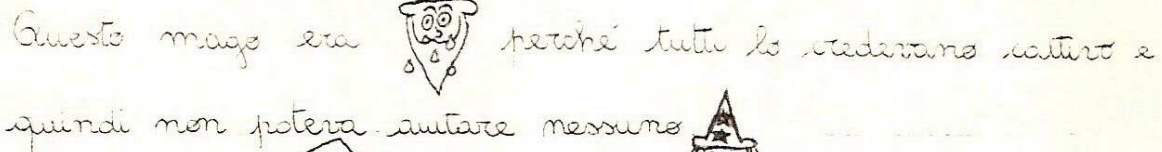 Questo mago era perché tutti lo credevano cattivo e
quindi non poteva aiutare nessuno